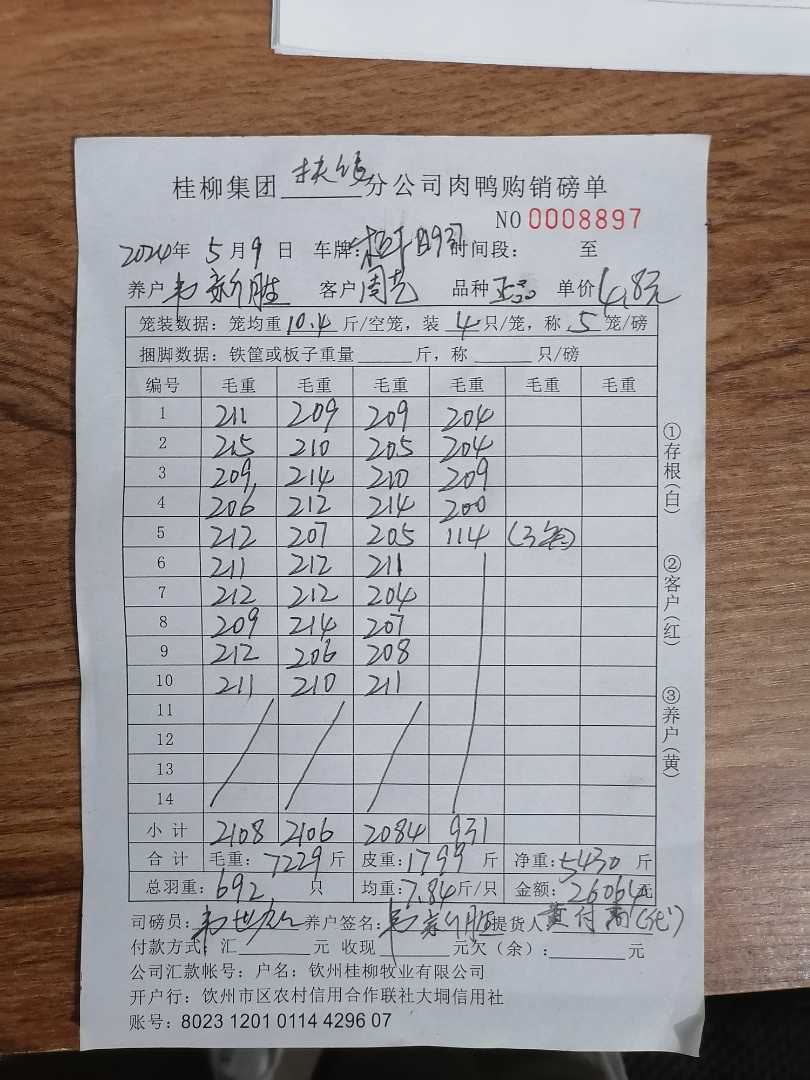 桂柳集团 扶绥 分公司肉鸭购销磅单
NO 0008897
2024年 5月9日 车牌: 时间段: 至
养户 韦新胜 客户 周 品种 正品 单价 4.8元
笼装数据：笼均重10.4斤/空笼，装4只/笼，称5笼/磅
捆脚数据：铁筐或板子重量______斤，称______只/磅
编号 毛重 毛重 毛重 毛重 毛重 毛重
1 211 209 209 204
2 215 210 205 204
3 209 214 210 209
4 206 212 214 200
5 212 207 205 114 (3笼)
6 211 212 211
7 212 212 204
8 209 214 207
9 212 206 208
10 211 210 211
11
12
13
14
小计 2108 2106 2084 931
合计 毛重:7229斤 皮重:1799斤 净重:5430斤
总羽重:692只 均重:7.84斤/只 金额:26064元
司磅员: 韦世 养户签名: 韦新胜 提货人 黄付 (代)
付款方式:汇______元 收现______元欠（余）:______元
公司汇款帐号：户名：钦州桂柳牧业有限公司
开户行：钦州市区农村信用合作联社大垌信用社
账号：8023 1201 0114 4296 07
①存根(白)
②客户(红)
③养户(黄)